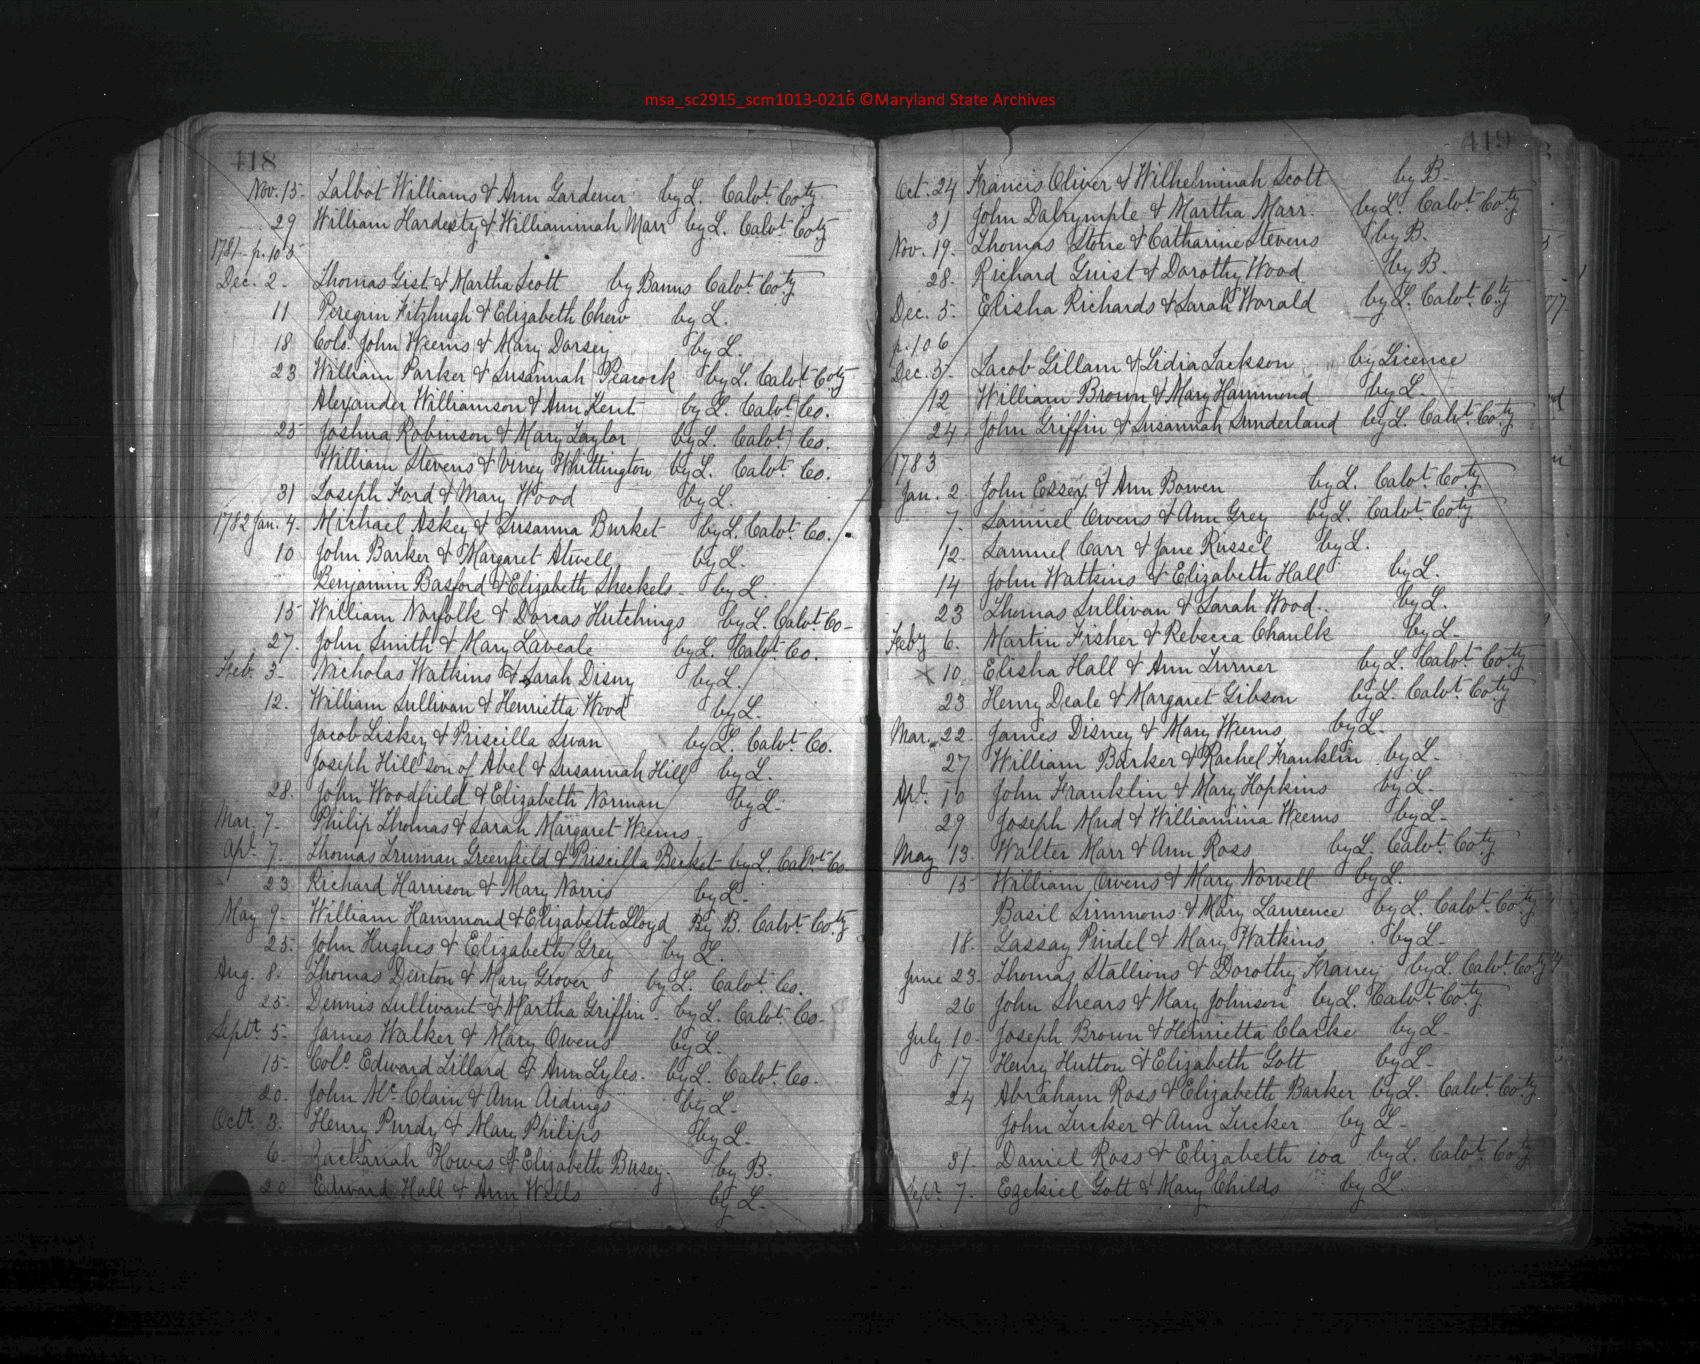 msa_sc2915_scm1013-0216 ©Maryland State Archives
418
Nov. 15- Talbot Williams & Ann Gardener by L. Calvt. Coty
29 William Hardesty & Williaminah Marr by L. Calvt. Coty
1781- p. 105
Dec. 2- Thomas Gist & Martha Scott by Banns Calvt. Coty
11 Peregrin Fitzhugh & Elizabeth Chew by L.
18 Colo. John Weems & Mary Dorsey by L.
23 William Parker & Susannah Peacock by L. Calvt Coty
Alexander Williamson & Ann Kent by L. Calvt. Co.
25 Joshua Robinson & Mary Taylor by L. Calvt. Co.
William Stevens & Viney Whittington by L. Calvt. Co.
31 Joseph Ford & Mary Wood by L.
1782 Jan. 4. Michael Askey & Susanna Burket by L. Calvt. Co.
10 John Barker & Margaret Atwell by L.
Benjamin Basford & Elizabeth Sheckels- by L.
15 William Norfolk & Dorcas Hutchings by L. Calvt. Co-
27. John Smith & Mary Laveale by L. Calvt. Co.
Feb. 3- Nicholas Watkins & Sarah Disny by L.
12. William Sullivan & Henrietta Wood by L.
Jacob Liskey & Priscilla Swan by L. Calvt. Co.
Joseph Hill son of Abel & Susannah Hill by L.
28. John Woodfield & Elizabeth Norman by L-
Mar. 7- Philip Thomas & Sarah Margaret Weems-
Apt. 7. Thomas Truman Greenfield & Priscilla Becket by L. Calvt. Co.
23 Richard Harrison & Mary Norris by L-
May 9- William Hammond & Elizabeth Lloyd By B. Calvt Coty
25- John Hughes & Elizabeth Grey by L.
Aug. 8- Thomas Denton & Mary Grover by L. Calvt. Co.
25- Dennis Sullivant & Martha Griffin- by L. Calvt. Co-
Septt. 5- James Walker & Mary Owens by L.
15- Colo. Edward Tillard & Ann Lyles- by L. Calvt. Co.
20. John Mc. Clain & Ann Ardings by L-
Octr. 3. Henry Purdy & Mary Philips by L-
6- Zachariah Howes & Elizabeth Busey- by B.
20 Edward Hall & Ann Wells by L-
419
Oct. 24 Francis Oliver & Wilhelminah Scott by B-
31 John Dalrymple & Martha Marr. by L. Calvt. Coty
Nov. 19. Thomas Stone & Catharine Stevens by B.
28. Richard Guist & Dorothy Wood by B.
Dec. 5- Elisha Richards & Sarah Worald by L. Calvt. Coty
p. 106
Dec. 5/. Jacob Gillam & Lidia Jackson by Licence
12 William Brown & Mary Hammond by L.
24. John Griffin & Susannah Sunderland by L. Calvt. Coty
1783
Jan. 2. John Essex & Ann Bowen by L. Calvt. Coty
7. Samuel Owens & Ann Grey by L. Calvt. Coty
12. Samuel Carr & Jane Russel by L.
14 John Watkins & Elizabeth Hall by L.
23 Thomas Sullivan & Sarah Wood. by L.
Feby 6. Martin Fisher & Rebecca Chaulk by L-
x 10. Elisha Hall & Ann Turner by L. Calvt. Coty
23 Henry Deale & Margaret Gibson by L. Calvt. Coty
Mar. 22- James Disney & Mary Weems by L.
27 William Barker & Rachel Franklin by L-
Apt. 10 John Franklin & Mary Hopkins by L-
29 Joseph Mud & Williamina Weems by L-
May 13. Walter Marr & Ann Ross by L. Calvt. Coty
15 William Owens & Mary Norvell by L.
Basil Simmons & Mary Laurence by L. Calvt. Coty
18. Gassay Pindel & Mary Watkins by L-
June 23- Thomas Stallions & Dorothy Franey by L. Calvt. Coty
26 John Shears & Mary Johnson by L. Calvt. Coty
July 10- Joseph Brown & Henrietta Clarke by L-
17 Henry Hutton & Elizabeth Gott by L-
24 Abraham Ross & Elizabeth Barker by L. Calvt. Coty
John Tucker & Ann Tucker by L-
31. Daniel Ross & Elizabeth by L. Calvt. Coty
Sept. 7. Ezekiel Gott & Mary Childs by L.